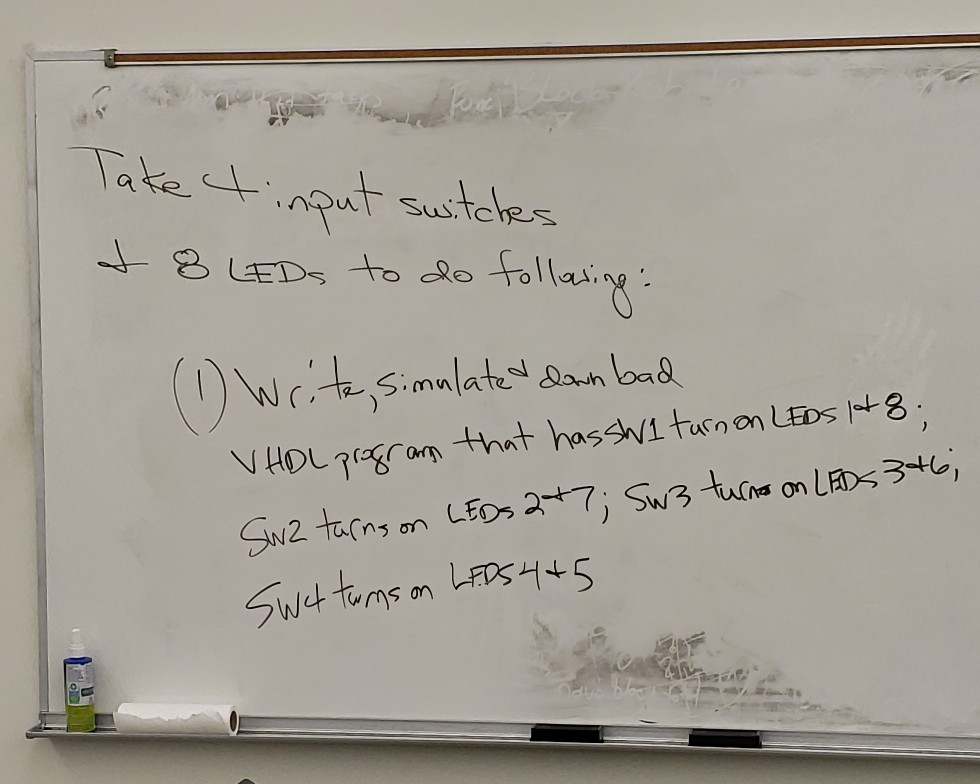 Take 4 input switches
+ 8 LEDs to do following:
(1) Write, simulate + download
VHDL program that has SW1 turn on LEDs 1+8;
SW2 turns on LEDs 2+7; SW3 turns on LEDs 3+6;
SW4 turns on LEDs 4+5